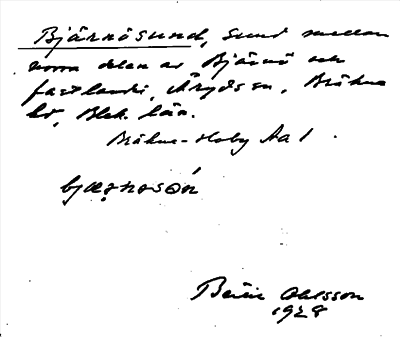 Bjärnösund, sund mellan
norra delen av Bjärnö och
fastlandet, Åryds sn, Bräkne
hd, Blek. län.
Bräkne-Hoby Aa 1.
Ohlsson
1928